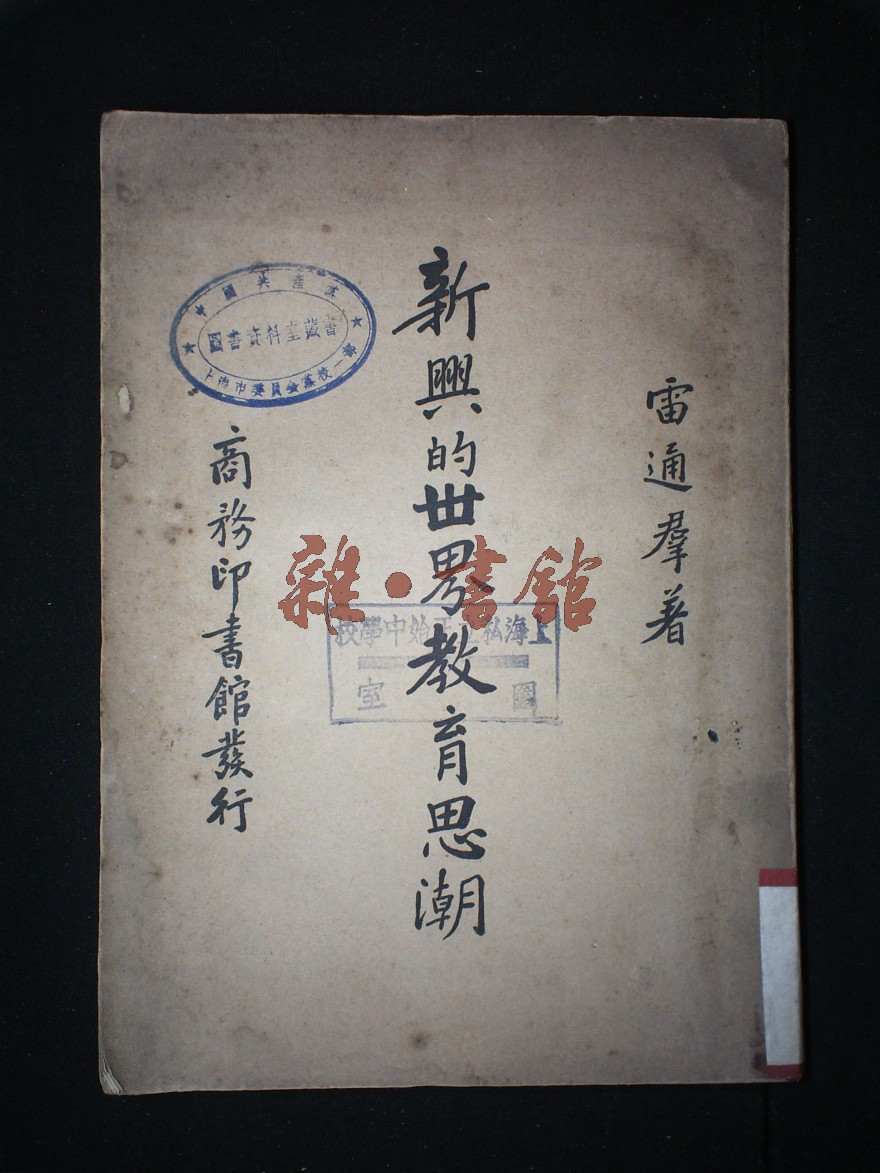 雷通羣著
新興的世界教育思潮
商務印書館發行
中國共產黨
圖書資料室藏書
上海市委員會黨校一部
上海私立正始中學校
圖 室
雜·書館